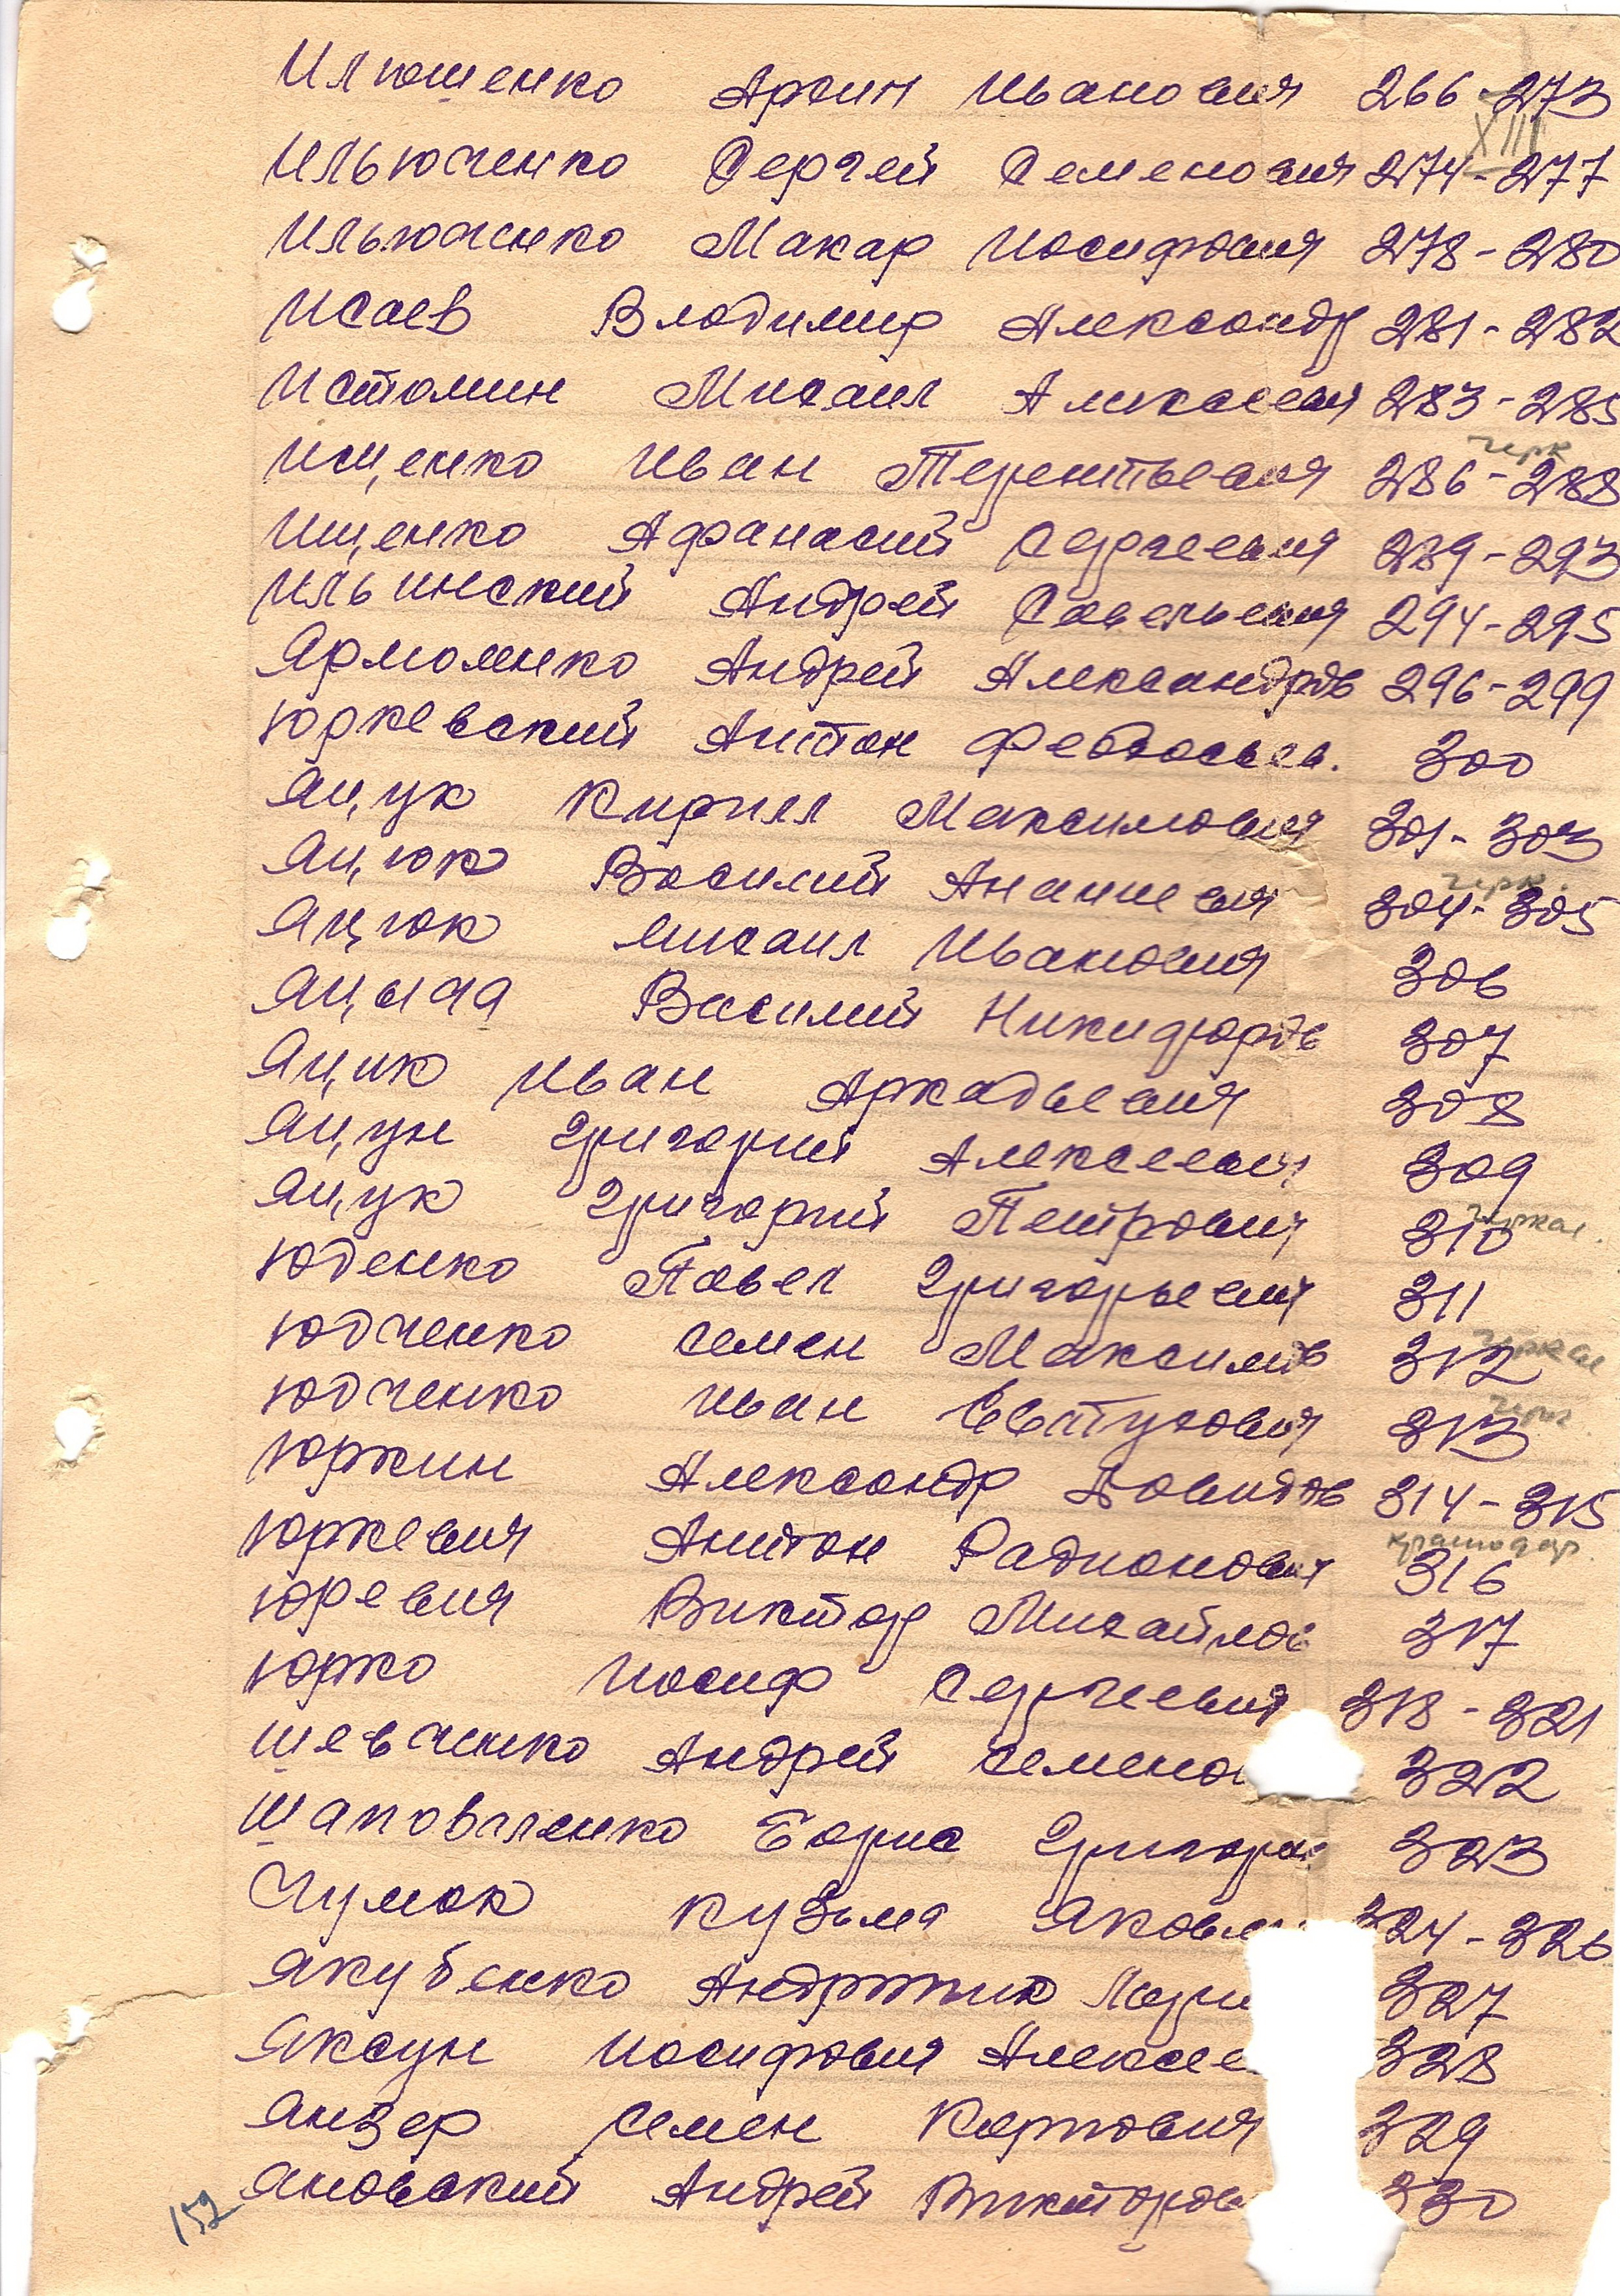 Илюшенко Архип Иванович 266-273
XIII
Ильюченко Сергей Семенович 274-277
Ильюченко Макар Иосифович 278-280
Исаев Владимир Александр 281-282
Истомин Михаил Алексеевич 283-285
черк
Ищенко Иван Терентьевич 286-288
Ищенко Афанасий Сергеевич 289-293
Ильинский Андрей Савельевич 294-295
Ярмоленко Андрей Александров 296-299
Юркевский Антон Феодосьев. 300
Яцук Кирилл Максимович 301-303
черк.
Яцюк Василий Ананиевич 304-305
Яцюк Михаил Иванович 306
Яцына Василий Никифоров 307
Яцик Иван Аркадьевич 308
Яцун Григорий Алексеевич 309
Яцук Григорий Петрович 310 черкас.
Юденко Павел Григорьевич 311
Юдченко Семен Максимов 312 черкас
Юдченко Иван Евстухович 313 черк.
Юркин Александр Давидов 314-315
Юркевич Антон Радионович 316 краснодар.
Юревич Виктор Михайлов 317
Юрко Иосиф Сергеевич 318-321
Шевченко Андрей Семенов 322
Шаповаленко Борис Григорьев 323
Чумак Кузьма Яковл 324-326
Якубенко Андроник 327
Яксун Иосифович Алексее 328
Янзер Семен Карпович 329
Яновский Андрей Викторов 330
152